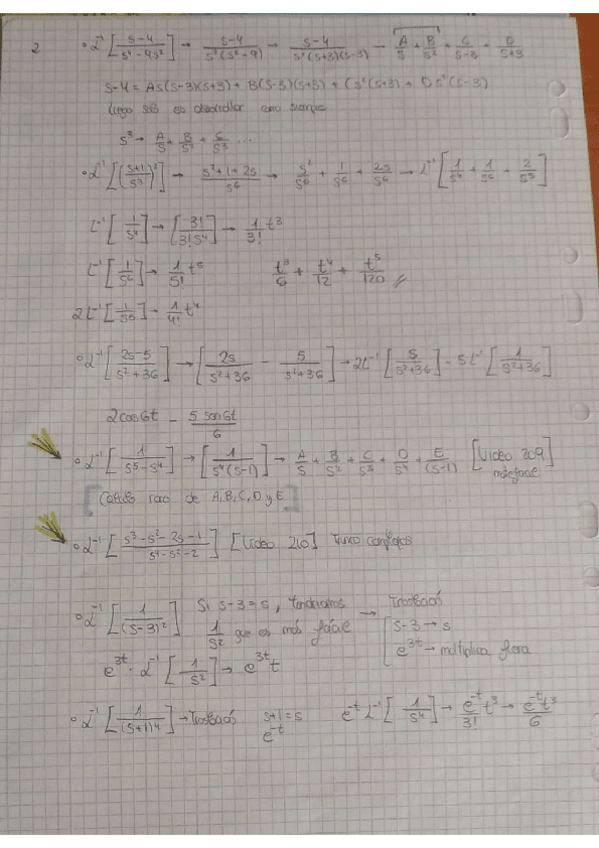 2
∘ ℒ⁻¹ [(s-4)/(s⁴-9s²)] → (s-4)/(s²(s²-9)) → (s-4)/(s²(s+3)(s-3)) → A/s + B/s² + C/(s-3) + D/(s+3)
s-4 = As(s-3)(s+3) + B(s-3)(s+3) + Cs²(s+3) + Ds²(s-3)
Luego solo es desarrollar como siempre
s³ → A/s + B/s² + C/s³ ...
∘ ℒ⁻¹ [(s+1)²/s³] → (s²+1+2s)/s⁶ → s²/s⁶ + 1/s⁶ + 2s/s⁶ → L⁻¹ [1/s⁴ + 1/s⁶ + 2/s⁵]
L⁻¹ [1/s⁴] → [3!/3!s⁴] → 1/3! t³
L⁻¹ [1/s⁶] → 1/5! t⁵    t³/6 + t⁴/12 + t⁵/120 //
2L⁻¹ [1/s⁵] → 1/4! t⁴
∘ ℒ⁻¹ [(2s-5)/(s²+36)] → [2s/(s²+36) - 5/(s²+36)] → 2L⁻¹ [s/(s²+36)] - 5L⁻¹ [1/(s²+36)]
2cos6t - 5 sen6t/6
∘ ℒ⁻¹ [1/(s⁵-s⁴)] → [1/(s⁴(s-1))] → A/s + B/s² + C/s³ + D/s⁴ + E/(s-1) [Video 209
[Cálculo raro de A,B,C,D y E]
∘ ℒ⁻¹ [(s³-s²-2s-1)/(s⁴-s²-2)] [Video 210] Truco complejos
∘ ℒ⁻¹ [1/(s-3)²] Si s-3=s, tendríamos → Traslación
1/s² que es más fácil [s-3 → s
e³ᵗ · ℒ⁻¹ [1/s²] → e³ᵗ t    e³ᵗ → multiplica fuera
∘ ℒ⁻¹ [1/(s+1)⁴] → Traslación s+1=s e⁻ᵗ L⁻¹ [1/s⁴] → e⁻ᵗ/3! t³ → e⁻ᵗt³/6
e⁻ᵗ